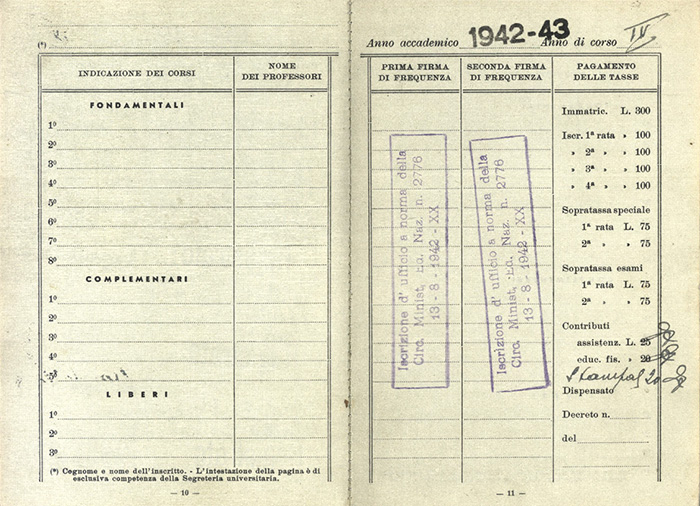 (*)
INDICAZIONE DEI CORSI
NOME
DEI PROFESSORI
FONDAMENTALI
1º
2º
3º
4º
5º
6º
7º
8º
COMPLEMENTARI
1º
2º
3º
4º
5º
LIBERI
1º
2º
3º
(*) Cegnome e nome dell'inscritto. - L'intestazione della pagina è di
esclusiva competenza della Segreteria universitaria.
— 10 —
Anno accademico 1942-43 Anno di corso IV
PRIMA FIRMA
DI FREQUENZA
SECONDA FIRMA
DI FREQUENZA
PAGAMENTO
DELLE TASSE
Iscrizione d'ufficio a norma della
Circ. Minist. Ed. Naz. n. 2776
13 - 8 - 1942 - XX
Iscrizione d'ufficio a norma della
Circ. Minist. Ed. Naz. n. 2776
13 - 8 - 1942 - XX
Immatric. L. 300
Iscr. 1ª rata » 100
» 2ª » » 100
» 3ª » » 100
» 4ª » » 100
Sopratassa speciale
1ª rata L. 75
2ª » » 75
Sopratassa esami
1ª rata L. 75
2ª » » 75
Contributi
assistenz. L. 25
educ. fis. » 20
Stampati 20
Dispensato
Decreto n.
del
— 11 —